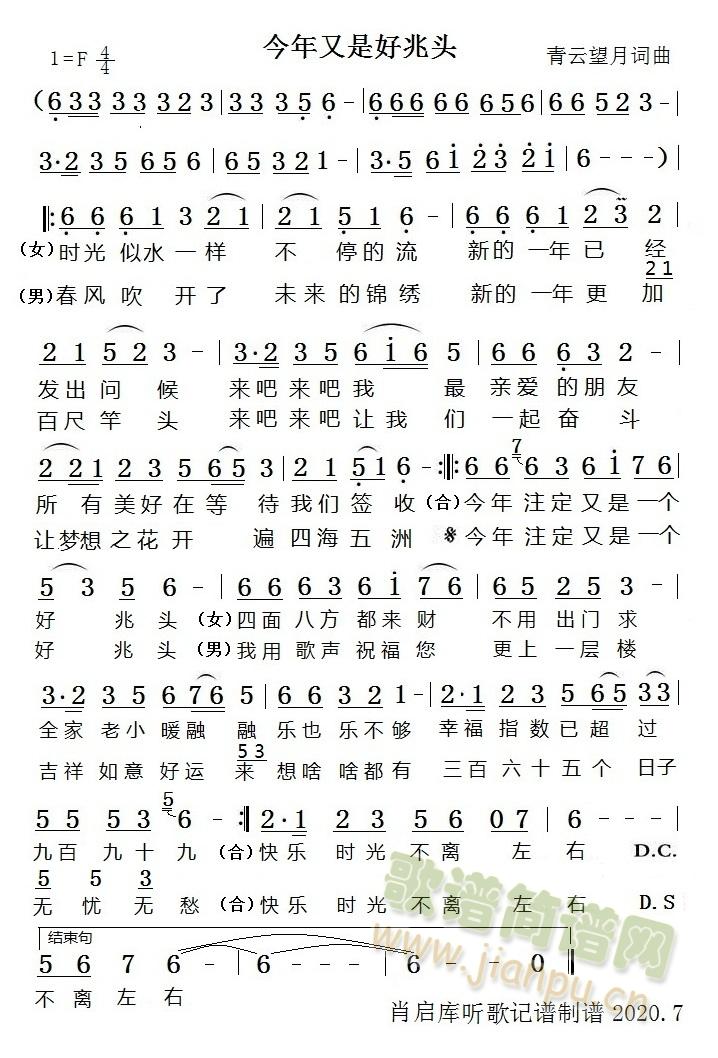 今年又是好兆头
1=F 4/4 青云望月词曲
(6 3 3 3 3 3 2 3 | 3 3 3 5 6 - | 6 6 6 6 6 6 6 5 6 | 6 - - - |
3·2 3 5 6 5 6 | 6 5 3 2 1 - | 3·5 6 1 2 3 2 1 | 6 - - - )|
|: 6 6 6 1 3 2 1 | 2 1 5 1 6 - | 6 6 6 1 2 3 2 |
(女)时光 似水 一样 不 停的 流 新的 一年 已 经
2 1
(男)春风 吹 开了 未来的锦绣 新的 一年 更 加
2 1 5 2 3 - | 3·2 3 5 6 1 6 5 | 6 6 6 3 2 - |
发出 问 候 来吧来吧我 最 亲爱 的朋友
百尺 竿 头 来吧来吧让我 们 一起 奋 斗
2 2 1 2 3 5 6 5 3 | 2 1 5 1 6 - :|: 6 6 7 6 3 6 1 7 6 |
所 有美好在等 待我们签 收(合)今年 注定又是一个
让梦想之花开 遍四海五洲 𝄋今年 注定又是一个
5 3 5 6 - | 3 3 6 1 7 6 | 6 5 2 5 3 |
好 兆头 (女)四面 八方 都来 财 不用 出门 求
好 兆头 (男)我用 歌声 祝福 您 更上 一层 楼
3·2 3 5 6 7 6 6 | 6 6 3 2 1 - | 2·1 2 3 5 6 5 3 3 |
全家 老小 暖融 融 乐也 乐不够 幸福 指数已超 过
5 3
吉祥 如意 好运 来 想啥 啥都有 三百 六十五个 日子
5 5 5 3 5 6 - :| 2·1 2 3 5 6 0 7 | 6 - - |
九百 九十九 (合)快乐 时光 不离 左 右 D.C.
5 5 3
无忧 无愁 (合)快乐 时光 不离 左 右 D.S
结束句
5 6 7 6 - | 6 - - | 6 - - 0 ‖
不离左右
歌谱简谱网
www.jianpu.cn
肖启库听歌记谱制谱 2020.7